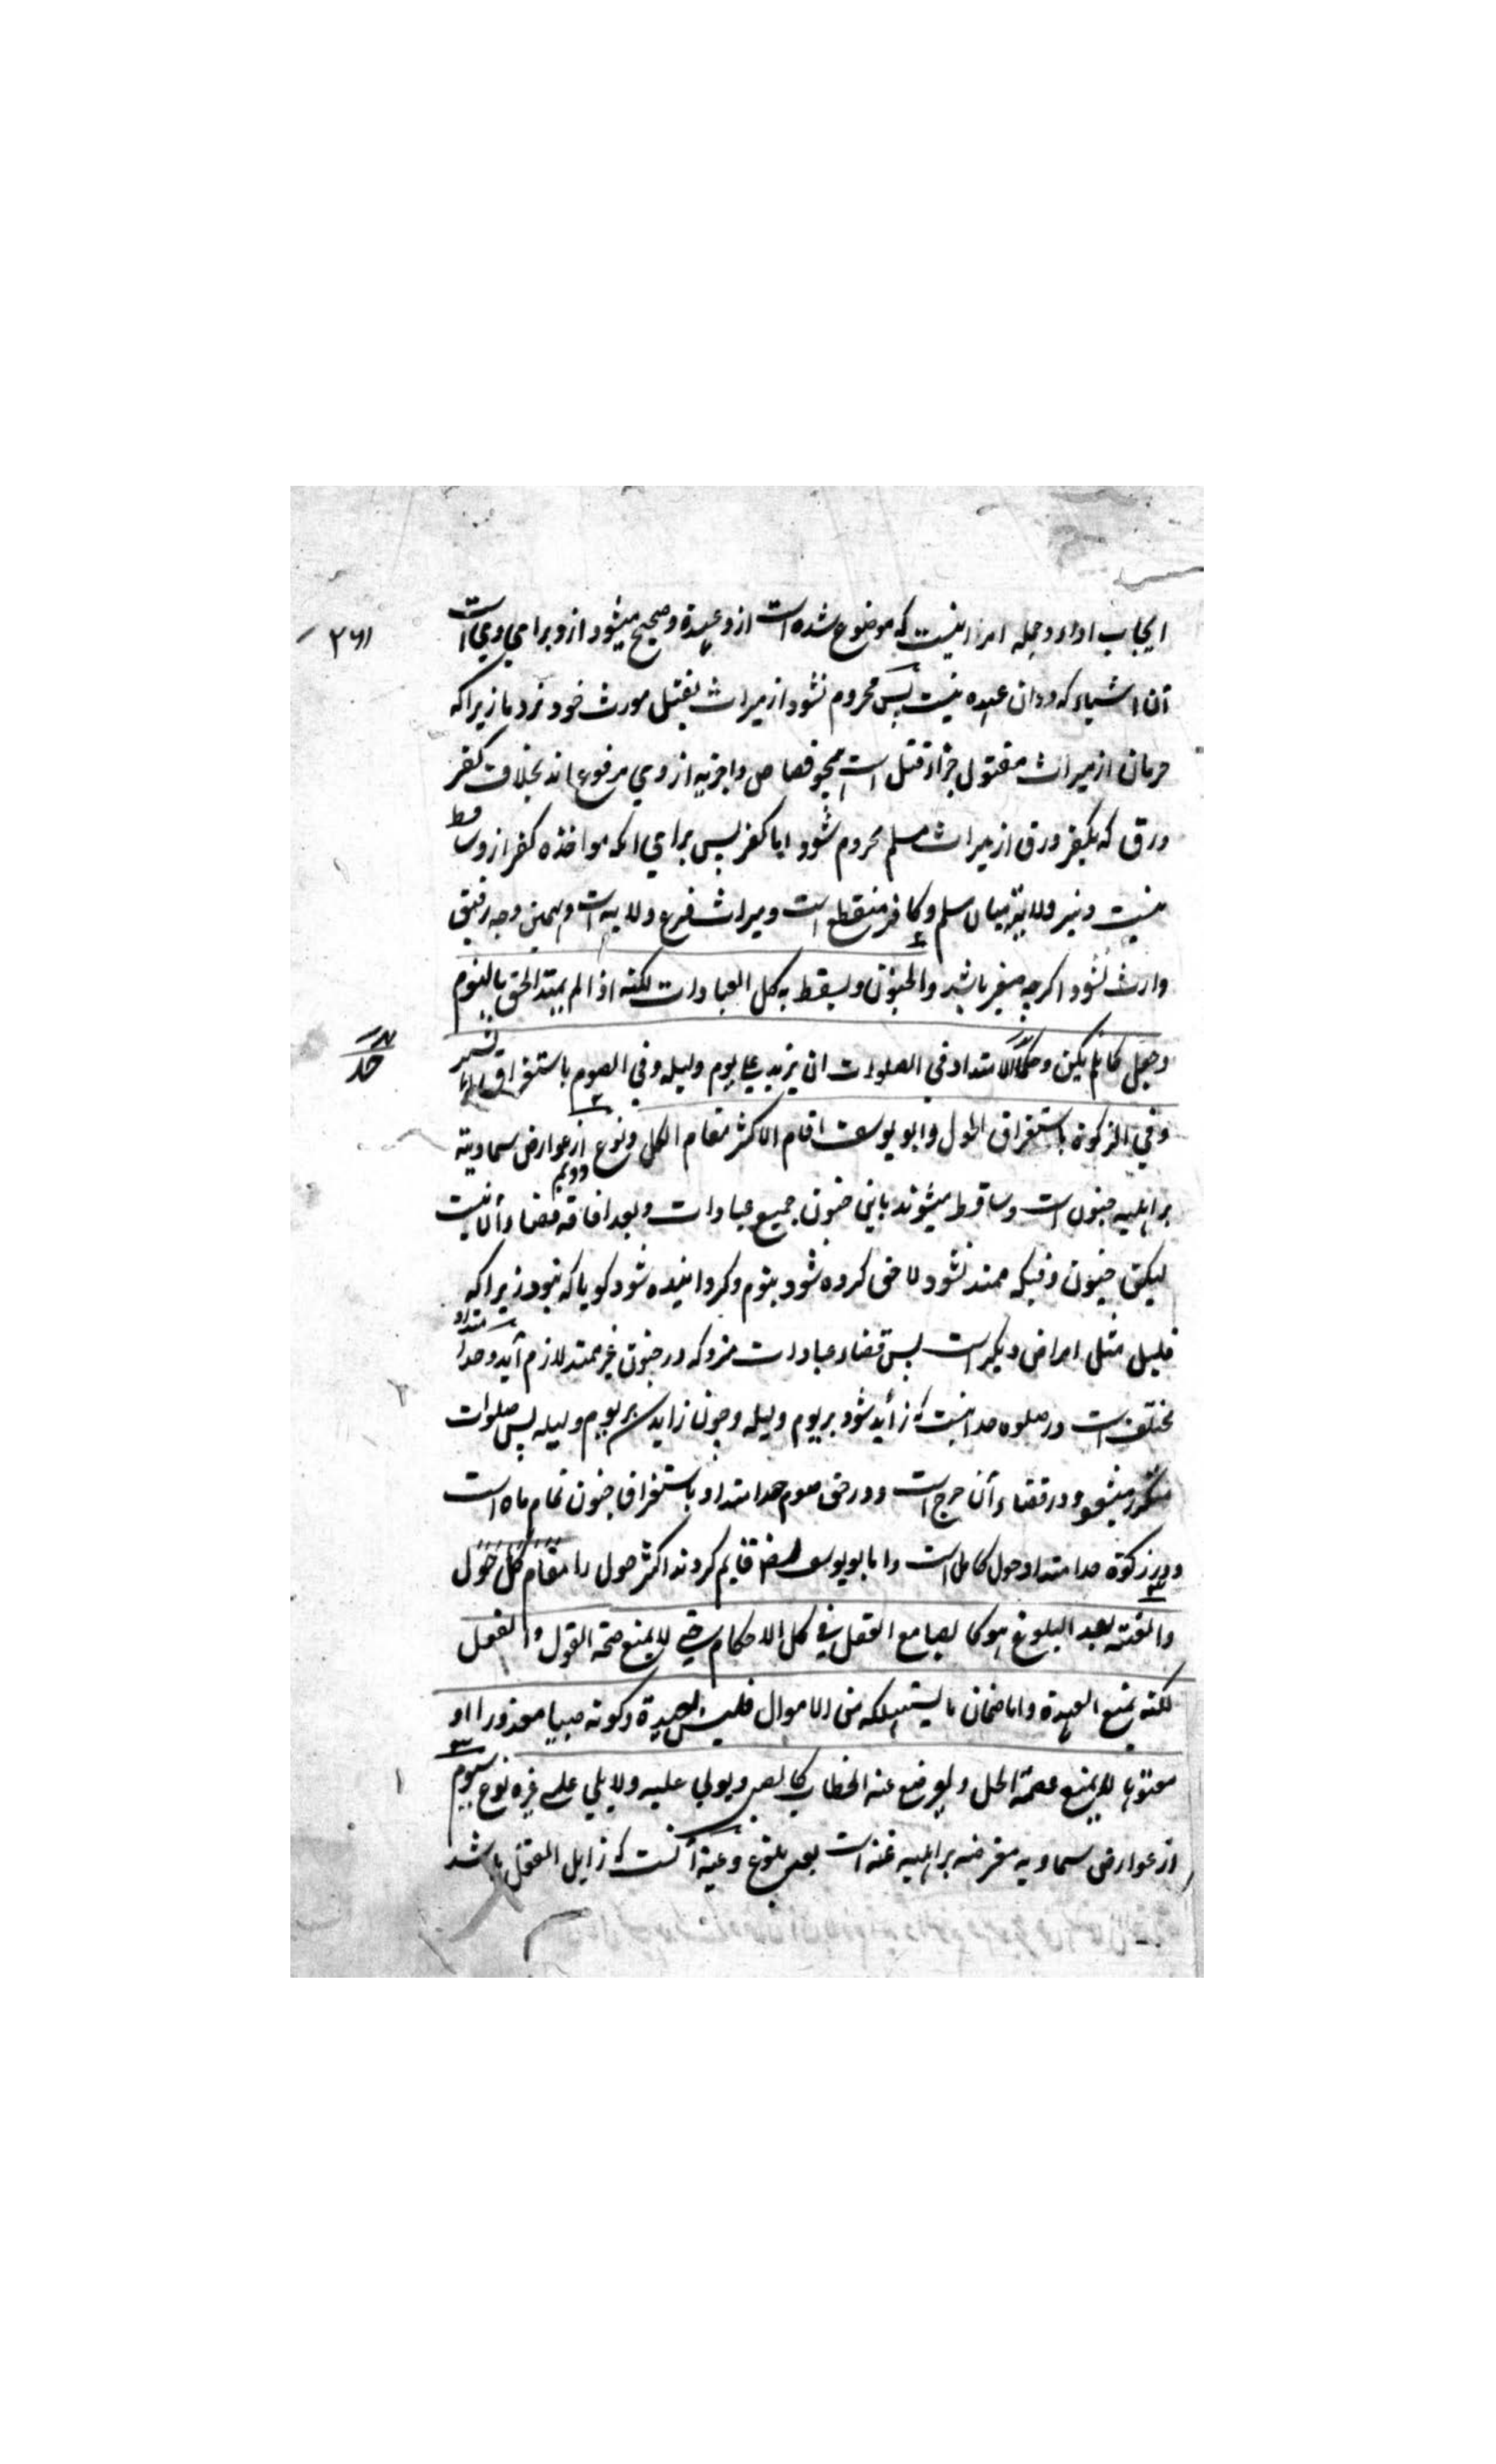 ایجاب اداء وجمله امر اینست که موضوع شده است ازو عهده وصحیح میشود ازو برای وی است
آن اشیاء که دران عهده نیست پس محروم نشود از میراث بقتل مورث خود نزد ما زیراکه
حرمان از میراث مقتول جزاء قتل است همچو قصاص واجزیه از وی مرفوع اند بخلاف کفر
ورق که بکفر ورق از میراث مسلم محروم شود اما کفر پس برای آنکه مواخذه کفر ازو ساقط
نیست ونیز ولایة میان مسلم وکافر منقطع است ومیراث فرع ولایه است وبهمین وجه رقیق
وارث نشود اکرچه صغیر باشد والجنون ویسقط به کل العبادات لکنه اذا لم یمتد الحق بالنوم
وجعل کان لم یکن وحد الامتداد فی الصلوات ان یزید علی یوم ولیله وفی الصوم باستغراق الشهر
وفی الزکوة باستغراق الحول وابو یوسف اقام الاکثر مقام الکل ونوع دویم از عوارض سماویة
بر اهلیه جنون است وساقط میشوند باین جنون جمیع عبادات وبعد افاقه قضاء آن نیست
لیکن جنون وقتیکه ممتد نشود لاحق کرده شود بنوم وکردانیده شود کویا که نبود زیراکه
قلیل مثل امراض دیکر است پس قضاء عبادات متروکه در جنون غیر ممتد لازم آید وحد امتداد
مختلف است در صلوه حد اینست که زاید شود بر یوم ولیله وچون زاید شد بر یوم ولیله پس صلوات
متکرر میشود ودر قضاء آن حرج است ودر حق صوم حد امتداد باستغراق جنون تمام ماه است
ودر زکوة حد امتداد حول کامل است واما ابو یوسف قایم کردند اکثر حول را مقام کل حول
والعته بعد البلوغ هو کالصبا مع العقل فی کل الاحکام حتی لا یمنع صحة القول والفعل
لکنه یمنع العهدة واما ضمان ما یستهلکه من الاموال فلیس بعهدة وکونه صبیا معذورا او
معتوها لا یمنع عصمة المحل ویوضع عنه الخطاب کالصبی ویولی علیه ولا یلی علی غیره نوع سیوم
از عوارض سماویه معترضه بر اهلیه عته است بعد بلوغ وعته آنست که زایل العقل باشد